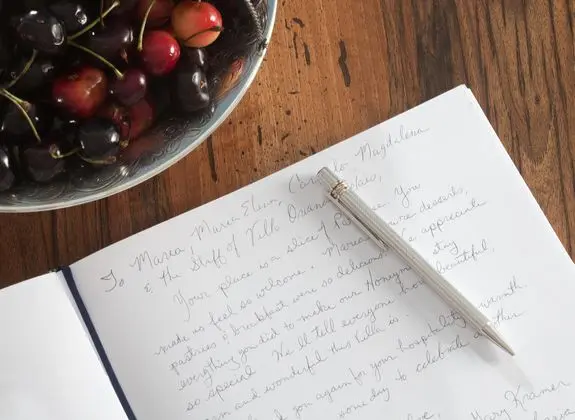 To Marea, Maria Elena, Magdalena
& the Staff of Villa
Your place is a slice of You
made us feel so welcome. desserts,
pastries & breakfast were so delicious. We appreciate
everything you did to make our Honeymoon stay
so special. We'll tell everyone how beautiful,
warm and wonderful this Villa is.
you again for your hospitality & warmth.
someday to celebrate another
love,
Mary Kramer